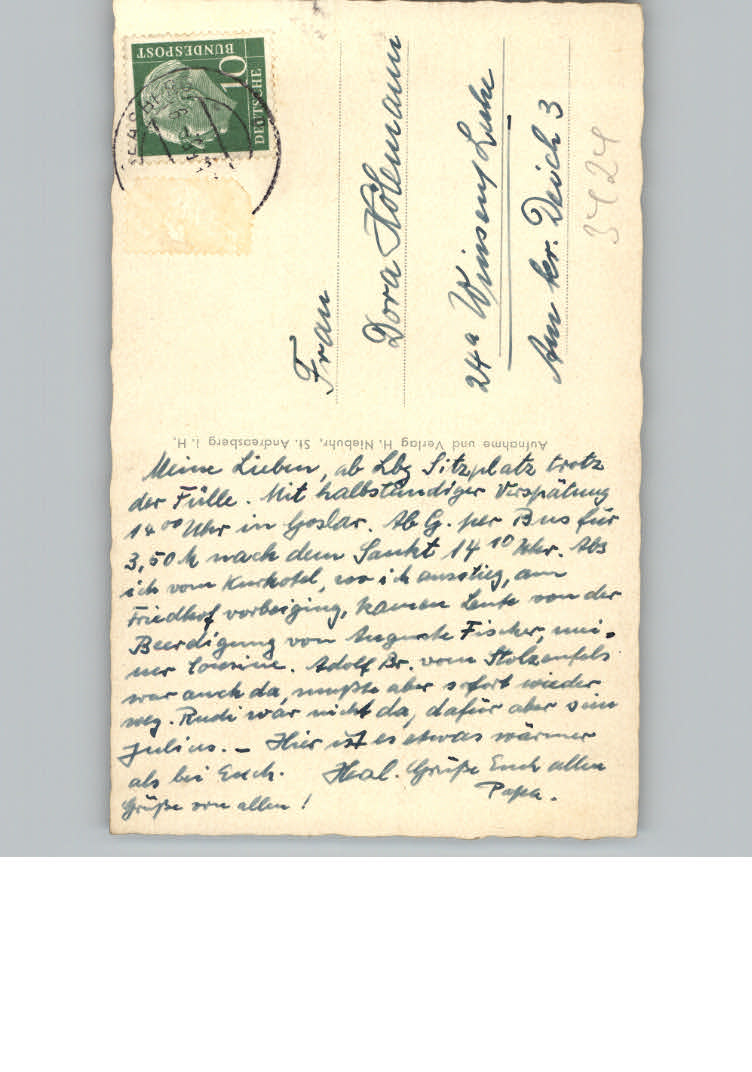 Meine Lieben, ab Lbg Sitzplatz trotz
der Fülle. Mit halbstündiger Verspätung
14 00 Uhr in Goslar. Ab G. per Bus für
3,50 M nach dem Sankt 14 10 Uhr. Als
ich vom Kurhotel, wo ich ausstieg, am
Friedhof vorbeiging, kamen Leute von der
Beerdigung von Auguste Fischer, mei-
ner Cousine. Adolf Br. vom Stolzenfels
war auch da, mußte aber sofort wieder
weg. Rudi war nicht da, dafür aber sein
Julius. – Hier ist es etwas wärmer
als bei Euch. Herzl. Grüße Euch allen
Grüße von allen! Papa.
Aufnahme und Verlag H. Niebuhr, St. Andreasberg i. H.
Frau
Dora Kölmann
24a Winsen/Luhe
Am kr. Deich 3
3424
DEUTSCHE
BUNDESPOST
10